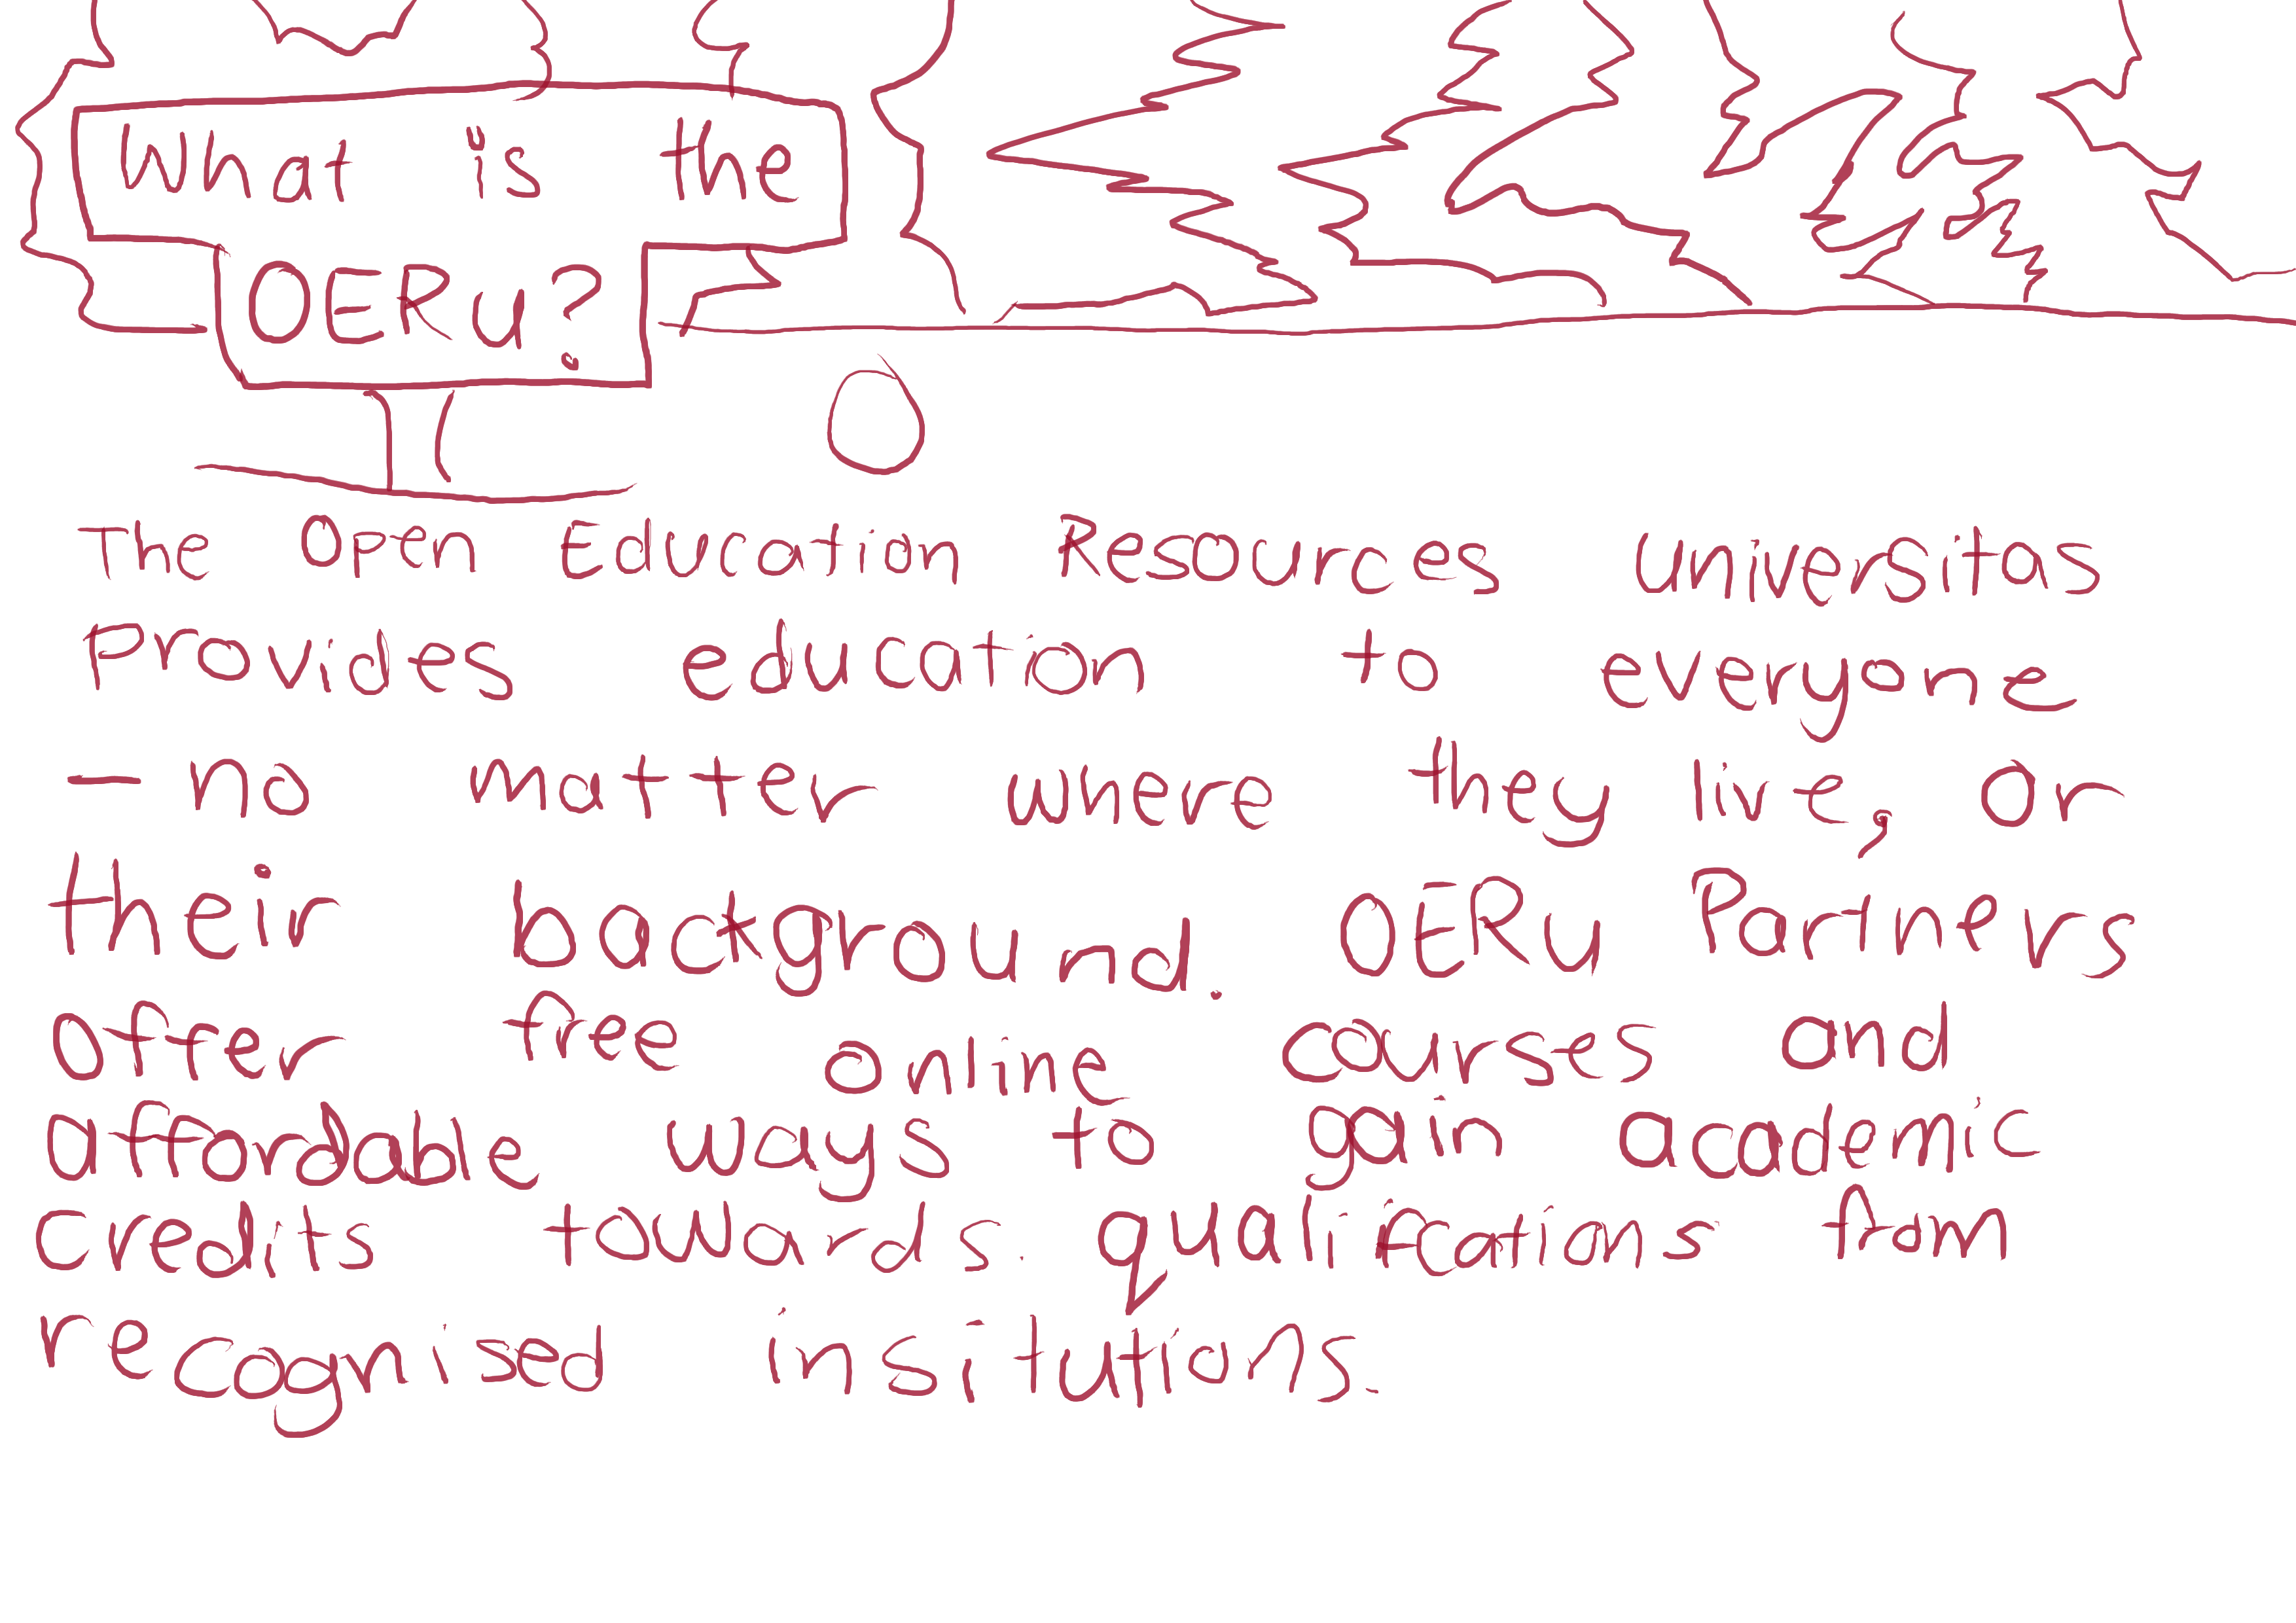 What is the
OERu?
The Open Education Resources universitas
Provides education to everyone
- no matter where they live, or
their background. OERu Partners
offer free online courses and
affordable ways to gain academic
credits towards. qualifications from
recognised insitutions.